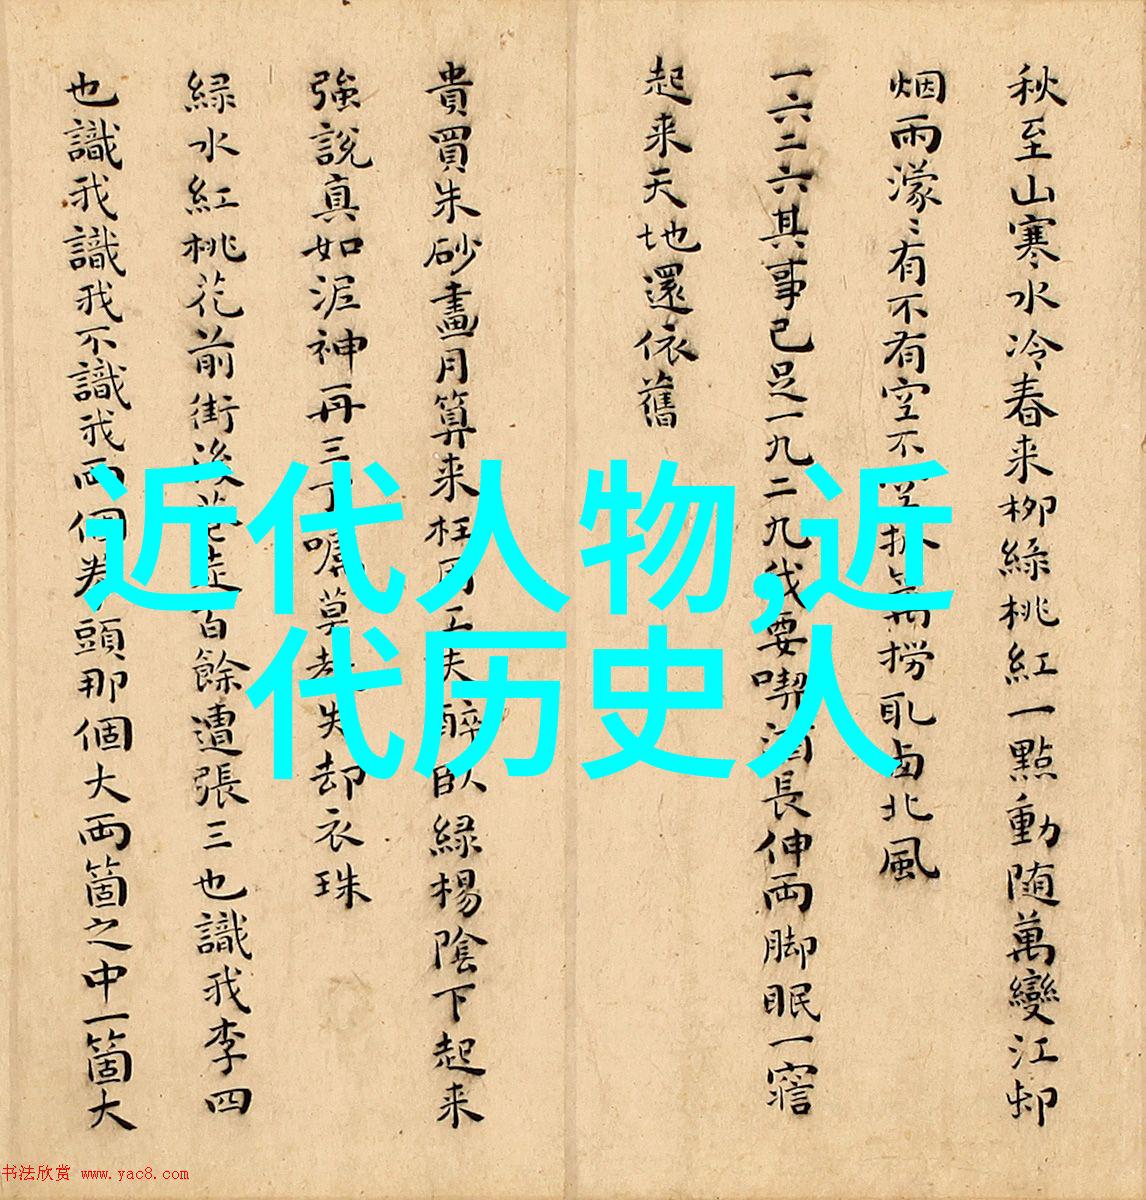 秋至山寒水冷春来柳緑桃紅一點動随萬變江邨
烟雨濛〻有不有空不撈取北風
一六二六其事已足一九二九我要喫酒長伸両脚眠一寤
起来天地還依舊
貴買朱砂畫月算来枉用工夫醉臥緑楊陰下起来
強説真如泥神再三丁囑莫教失却衣珠
緑水紅桃花前街後巷走百餘遭張三也識我李四
也識我識我不識我両個拳頭那個大両箇之中一箇大
近代人物,近
代历史人
书法欣赏 www.yac8.com